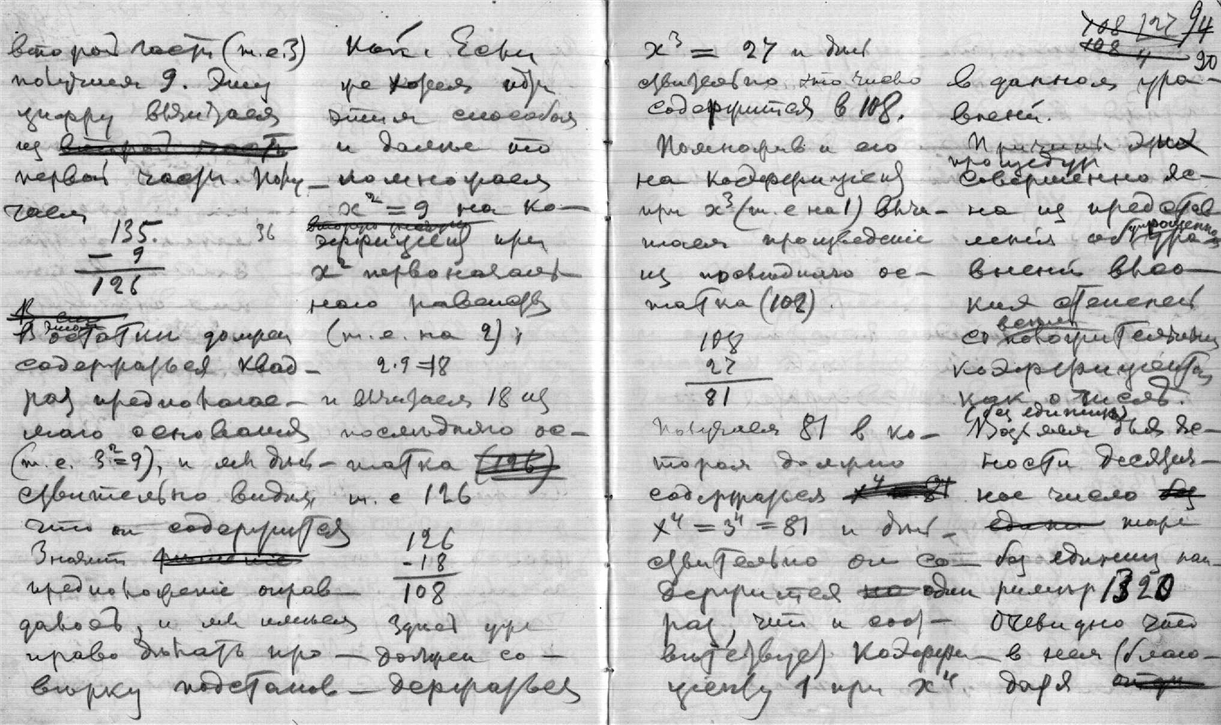 второй части (т.е. 3)
получим 9. Эту
цифру вычитаем
из второй части
первой части. Полу-
чаем
135
- 9
126
36
В остатки должен
содержаться квад-
рат предполагае-
мого основания
(т.е. 3²=9), и мы дѣй-
ствительно видим,
что он содержится
Значит
предположеніе оправ-
далось, и мы имѣем
право дѣлать про-
вѣрку подстанов-
кой. Если
же хотел
этим способом
и далее то
помножаем
x² = 9 на ко-
эффициент при
x² первоначаль-
ного равенства
(т.е. на 2);
2·9=18
и вычитаем 18 из
послѣдняго ос-
татка (126)
т.е. 126
126
-18
108
Здесь уже
должен со-
держаться
x³ = 27 и дѣй-
ствительно это число
содержится в 108.
Помножив и его
на коэффициент
при x³ (т.е на 1) вычи-
таем произведеніе
из последняго ос-
татка (108).
108
27
81
Получаем 81 в ко-
тором должно
содержаться x⁴ 81
x⁴ = 3⁴ = 81 и дѣй-
ствительно он со-
держится на один
раз, что и соот-
вѣтствует коэффи-
циенту 1 при x⁴.
108 | 27
108 4
94
90
в данном урав-
нении.
Причина
процедуры
совершенно яс-
на из представ
ленія
упрощенно
вненій высо-
ких степеней
с
коэффициентами
как о числѣ.
(без единиц)
Возьмем для яс-
ности десятич-
ное число без
едини тоже
без единиц на-
пример 1320
Очевидно что
в нем (благо-
даря